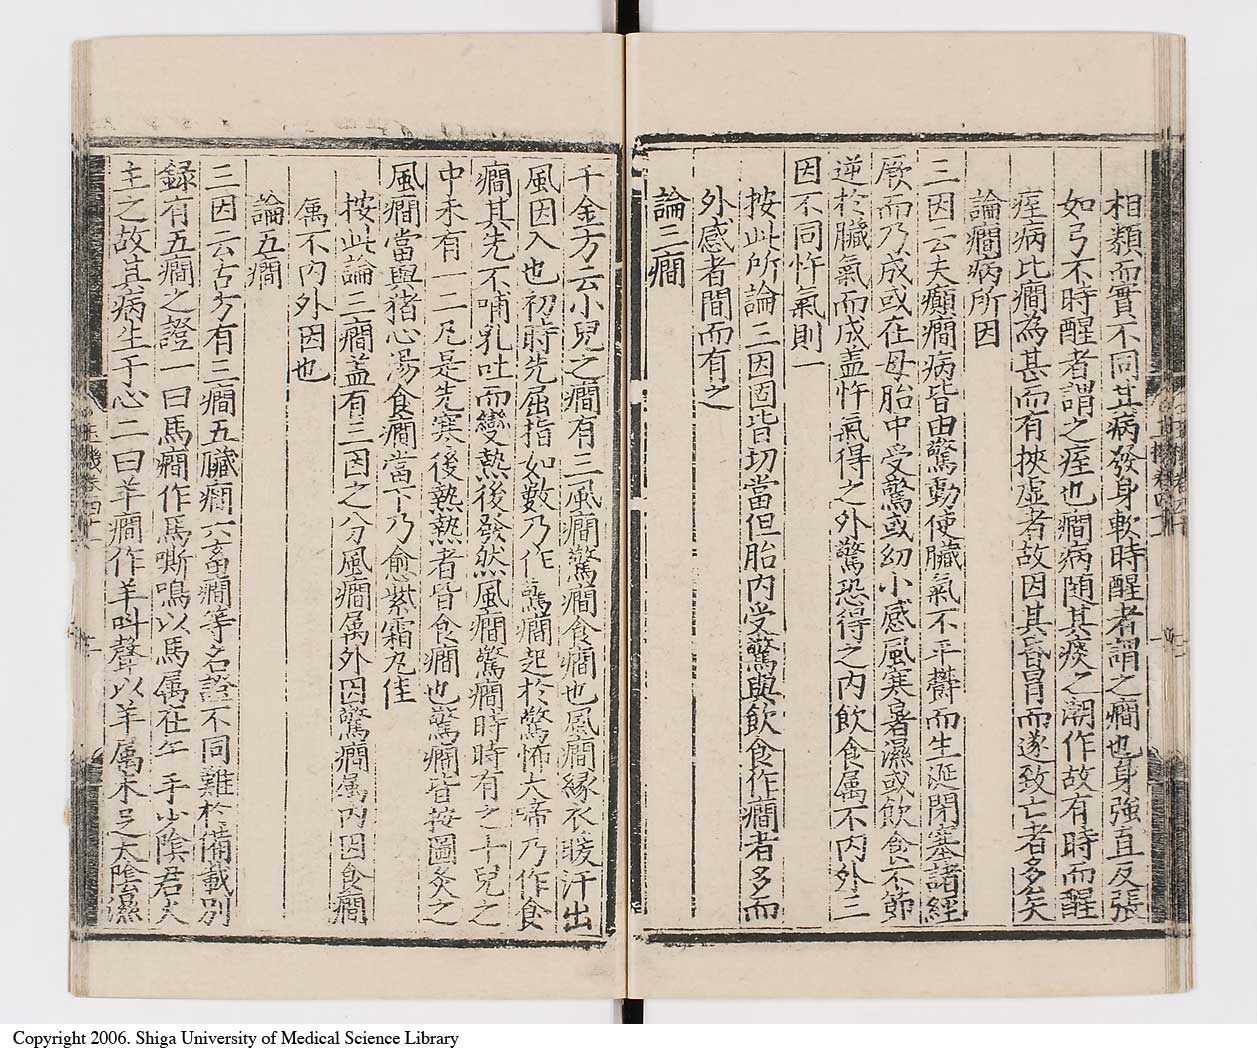 相類而實不同其病發身軟時醒者謂之癎也身強直反張
如弓不時醒者謂之痓也癎病随其痰之潮作故有時而醒
痓病比癎為甚而有挾虚者故因其昏冒而遂致亡者多矣
論癎病所因
三因云夫癲癎病皆由驚動使臟氣不平欝而生涎閉塞諸經
厥而乃成或在母胎中受驚或幼小感風寒暑濕或飲食不節
逆於臟氣而成盖忤氣得之外驚恐得之内飲食属不内外三
因不同忤氣則一
按此所論三因固皆切當但胎内受驚與飲食作癎者多而
外感者間而有之
論三癎
千金方云小兒之癎有三風癎驚癎食癎也風癎縁衣暖汗出
風因入也初時先屈指如數乃作驚癎起於驚怖大啼乃作食
癎其先不哺乳吐而變熱後發然風癎驚癎時時有之十兒之
中未有一二凡是先寒後熱熱者皆食癎也驚癎皆按圖灸之
風癎當與猪心湯食癎當下乃愈紫霜丸佳
按此論三癎盖有三因之分風癎属外因驚癎属内因食癎
属不内外因也
論五癎
三因云古方有三癎五臟癎六畜癎等名證不同難於備載別
録有五癎之證一曰馬癎作馬嘶鳴以馬属在午手少陰君火
主之故其病生于心二曰羊癎作羊叫聲以羊属未足太陰濕
玉機卷四十一
Copyright 2006. Shiga University of Medical Science Library